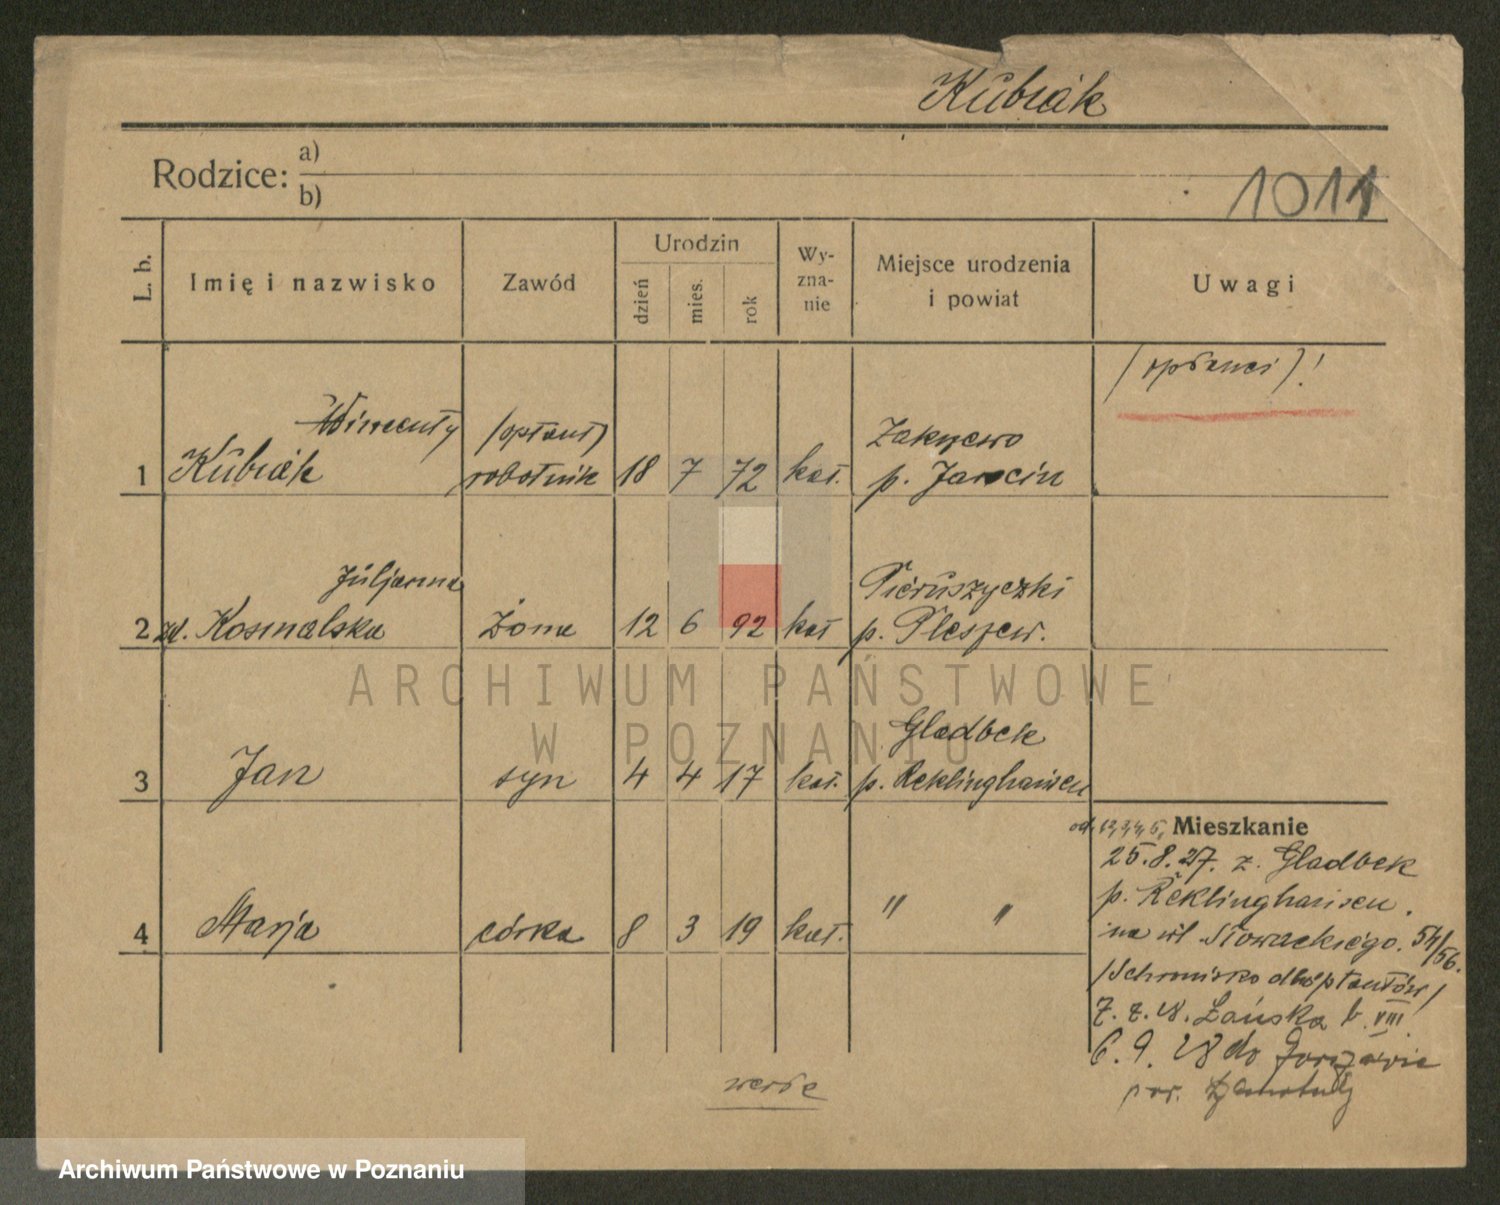 Kubiak
Rodzice:
a)
b)
1011
L. b.
Imię i nazwisko
Zawód
Urodzin
dzień
mies.
rok
Wy-
zna-
nie
Miejsce urodzenia
i powiat
Uwagi
(optanci)!
1
Wincenty
Kubiak
(optant)
robotnik
18
7
72
kat.
Zakrzewo
p. Jarocin
2
Juljanna
zd. Kosmalska
żona
12
6
92
kat
Pieruszyczki
p. Pleszew.
3
Jan
syn
4
4
17
kat.
Gladbek
p. Reklinghausen
4
Marja
córka
8
3
19
kat.
" "
Mieszkanie
25.8.27. z. Gladbek
p. Reklinghausen.
na ul Słowackiego. 54/56.
/Schronisko dla optantów/
7. 2. 28. Łańska b. VIII
6. 9. 28 do
pow.
ARCHIWUM PAŃSTWOWE
W POZNANIU
Archiwum Państwowe w Poznaniu